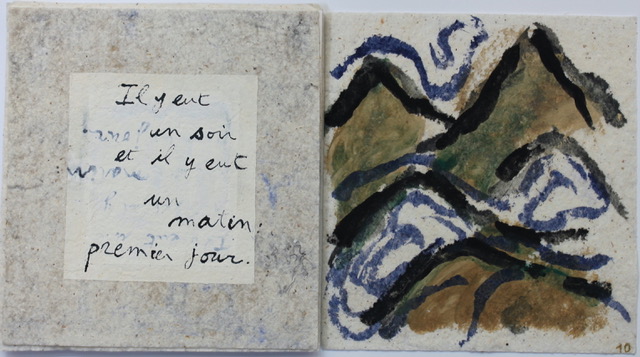 Il y eut
un soir
et il y eut
un
matin:
premier jour.
10